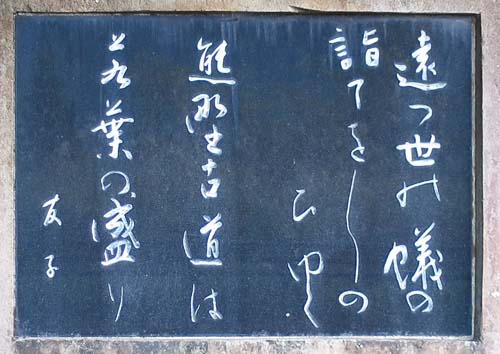 遠つ世の蟻の
詣てをしの
ひゆく
熊野古道は
若葉の盛り
友子